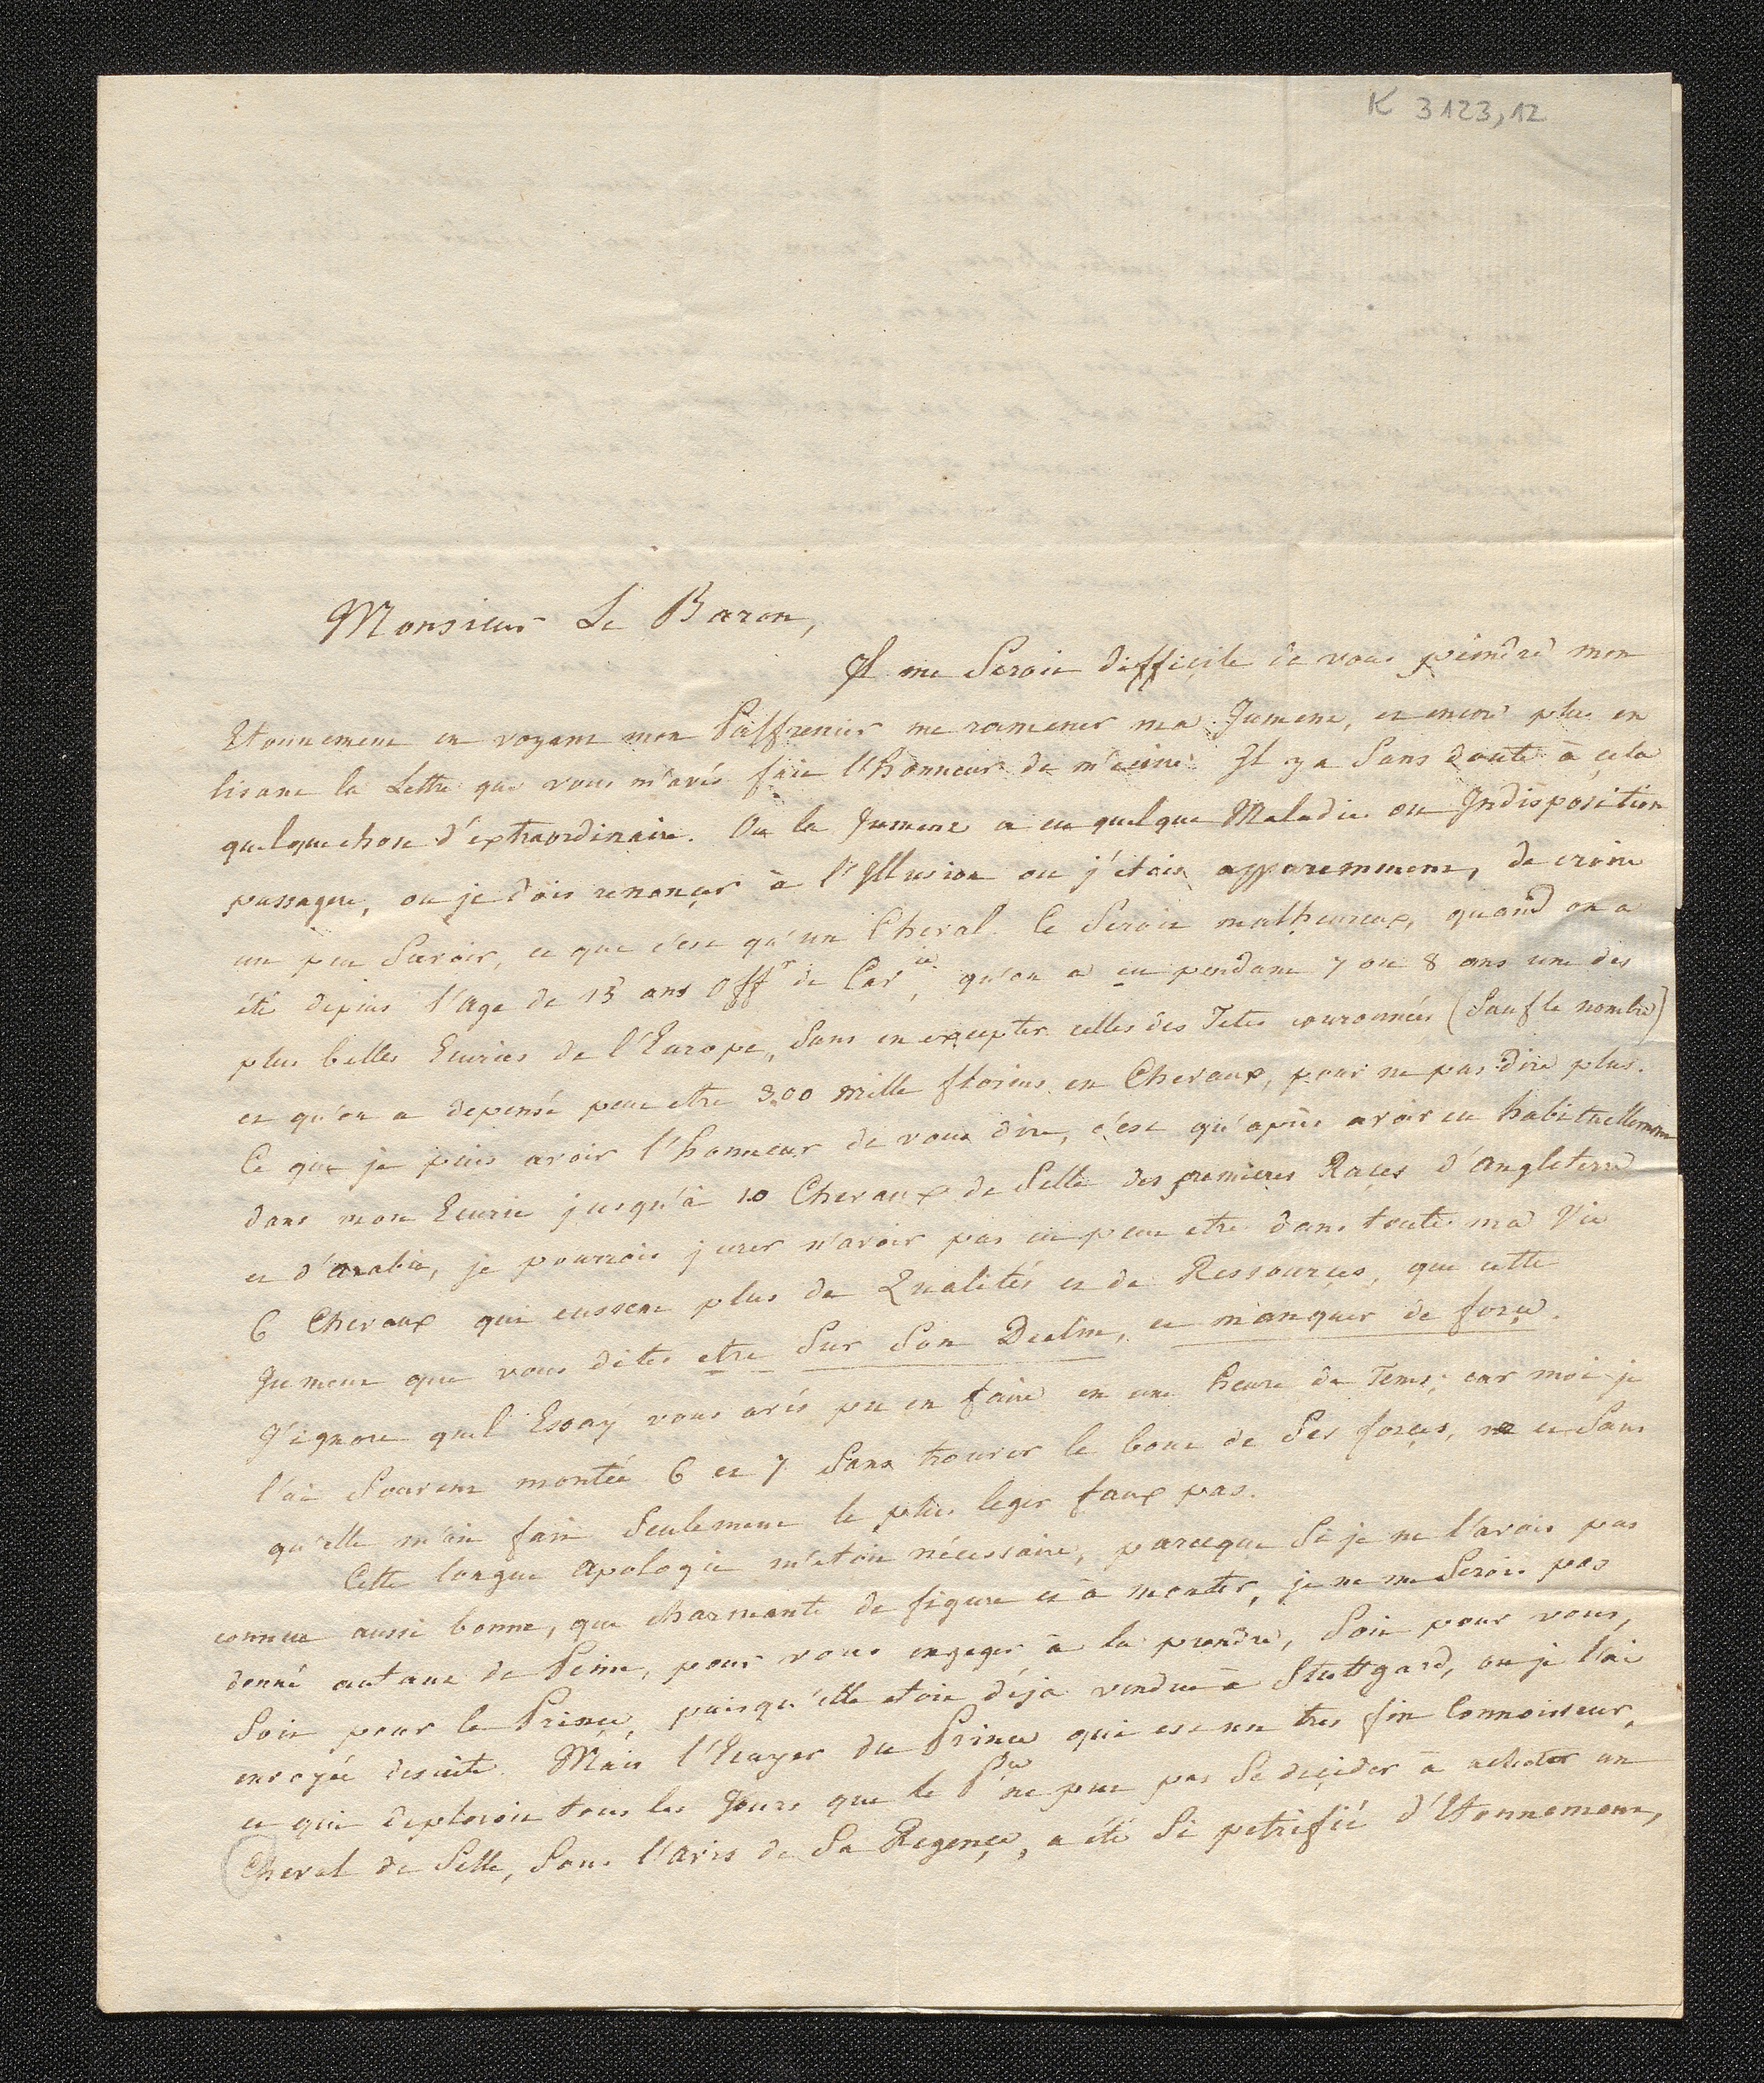 K 3123,12
Monsieur Le Baron,
Il me Seroit difficile de vous peindre mon
Etonnement en voyant mon Palfrenier me ramener ma Jument, et encor plus en
lisant la Lettre que vous m'avés fait l'honneur de m'ecrire. Il y a Sans doute à cela
quelquechose d'extraordinaire. Ou la Jument a eu quelque Maladie ou Indisposition
passagere, ou je dois renonçer à l'Illusion ou j'étois apparemment, de croire
un peu Savoir, ce que c'est qu'un Cheval. Ce Seroit malheureux, quand on a
été depuis l'age de 15 ans Offr de Cavie, qu'on a eu pendant 7 ou 8 ans une des
plus belles Ecuries de l'Europe, Sans en excepter celles des Tetes couronnées (Sauf le nombre)
et qu'on a depensé peut etre 300 mille florins en Chevaux, pour ne pas dire plus.
Ce que je puis avoir l'honneur de vous dire, c'est qu'après avoir eu habituellement
dans mon Ecurie jusqu'à 10 Chevaux de Selle des premieres Races d'Angleterre
et d'Arabie, je pourrois jurer n'avoir pas eu peut etre dans toute ma Vie
6 Chevaux qui eussent plus de Qualités et de Ressources, que cette
Jument que vous dites etre Sur Son Declin, et manquer de force.
J'ignore quel Essay vous avés pu en faire en une heure de Tems; car moi je
l'ai Souvent montée 6 et 7 Sans trouver le bout de Ses forçes, et Sans
qu'elle m'ait fait Seulement le plus leger faux pas.
Cette longue Apologie m'etoit nécessaire, parceque Si je ne l'avois pas
connue aussi bonne, que charmante de figure et à monter, je ne me Serois pas
donné autant de Peine, pour vous engager à la prendre, Soit pour vous,
Soit pour le Prince, puisqu'elle etoit déja vendue à Stuttgard, ou je l'ai
envoyée desuite. Mais l'Ecuyer du Prince qui est un tres fin Connoisseur,
et qui deploroit tous les Jours que le Pce ne put pas Se deçider à acheter un
Cheval de Selle, Sans l'avis de Sa Regençe, a été Si petrifié d'Etonnement,